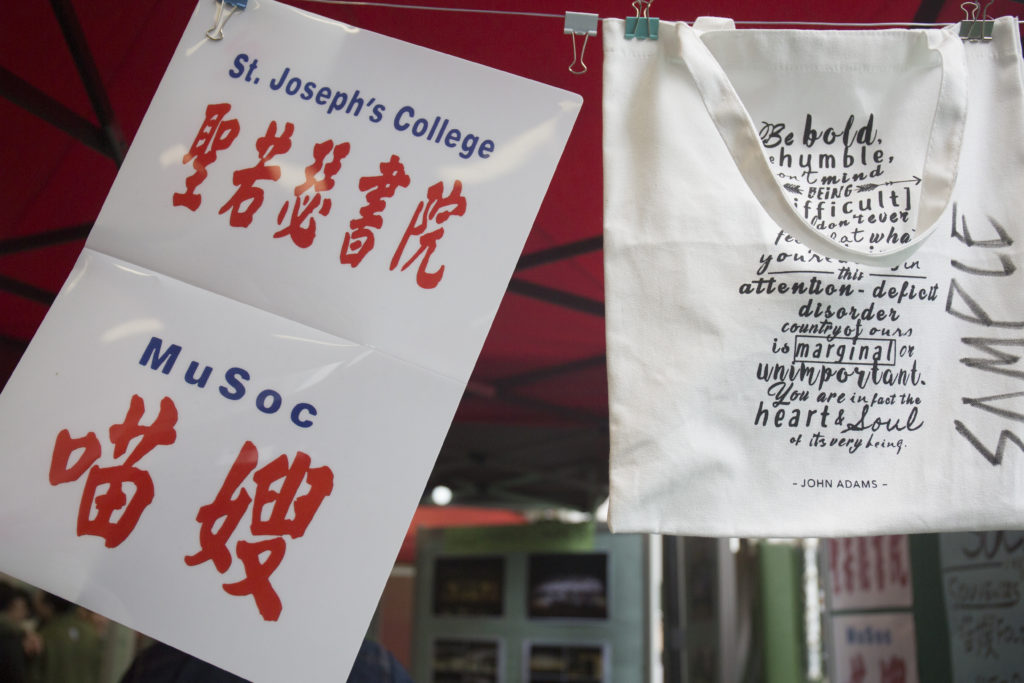 St. Joseph's College
聖若瑟書院
MuSoc
喵嫂
Be bold,
humble,
mind
BEING
ifficult]
don't ever
what
this
attention - deficit
disorder
country of ours
is marginal or
unimportant.
You are in fact the
heart & Soul
of its very being.
- JOHN ADAMS -
SAMPLE
聖若瑟書院
MuSoc